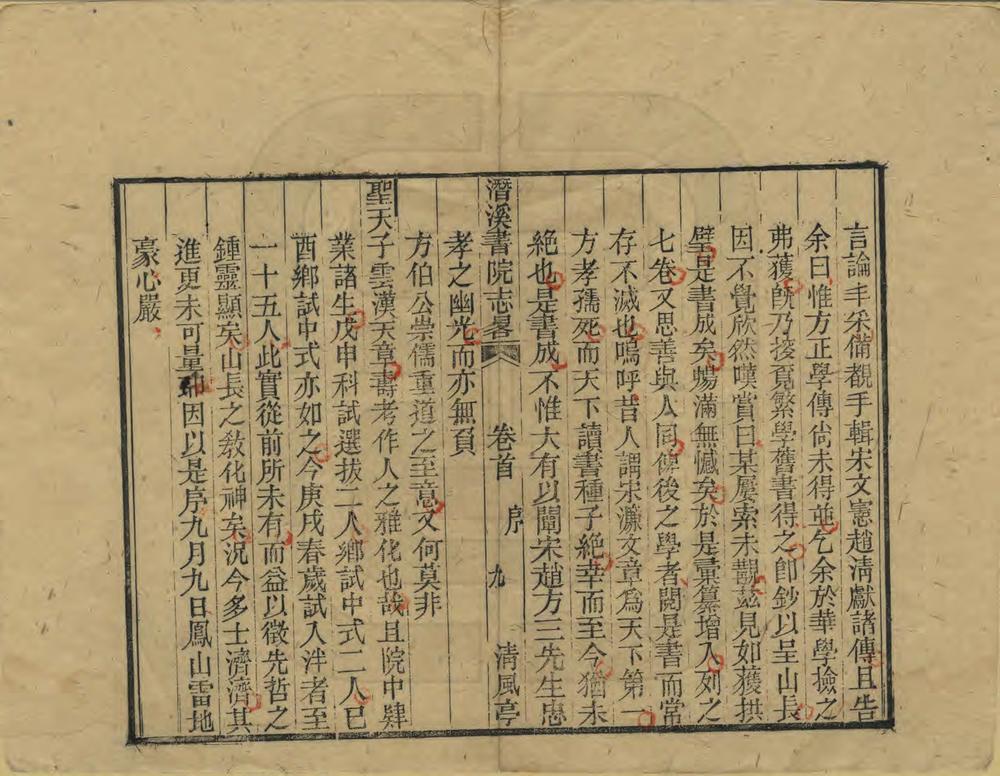 言論丰采備覩手輯宋文憲趙淸獻諸傳且告
余曰惟方正學傳尙未得並乞余於華學撿之
弗獲旣乃搜覓繁學舊書得之卽鈔以呈山長
因不覺欣然嘆賞曰某屢索未覩茲見如獲拱
璧是書成矣暢滿無憾矣於是彙纂增入列之
七卷又思善與人同俾後之學者閱是書而常
存不滅也嗚呼昔人謂宋濂文章爲天下第一
方孝孺死而天下讀書種子絶幸而至今猶未
絶也是書成不惟大有以聞宋趙方三先生忠
潛溪書院志畧 卷首 序 九 淸風亭
孝之幽光而亦無負
方伯公崇儒重道之至意又何莫非
聖天子雲漢天章壽考作人之雅化也哉且院中肄
業諸生戊申科試選拔二人鄉試中式二人已
酉鄉試中式亦如之今庚戌春歲試入泮者至
一十五人此實從前所未有而益以徵先哲之
鍾靈顯矣山長之敎化神矣況今多士濟濟其
進更未可量卽因以是序九月九日鳳山雷地
豪心嚴